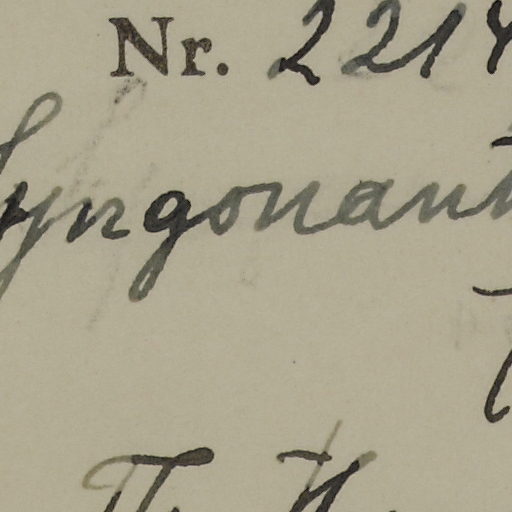 Nr. 2214
Syngonant